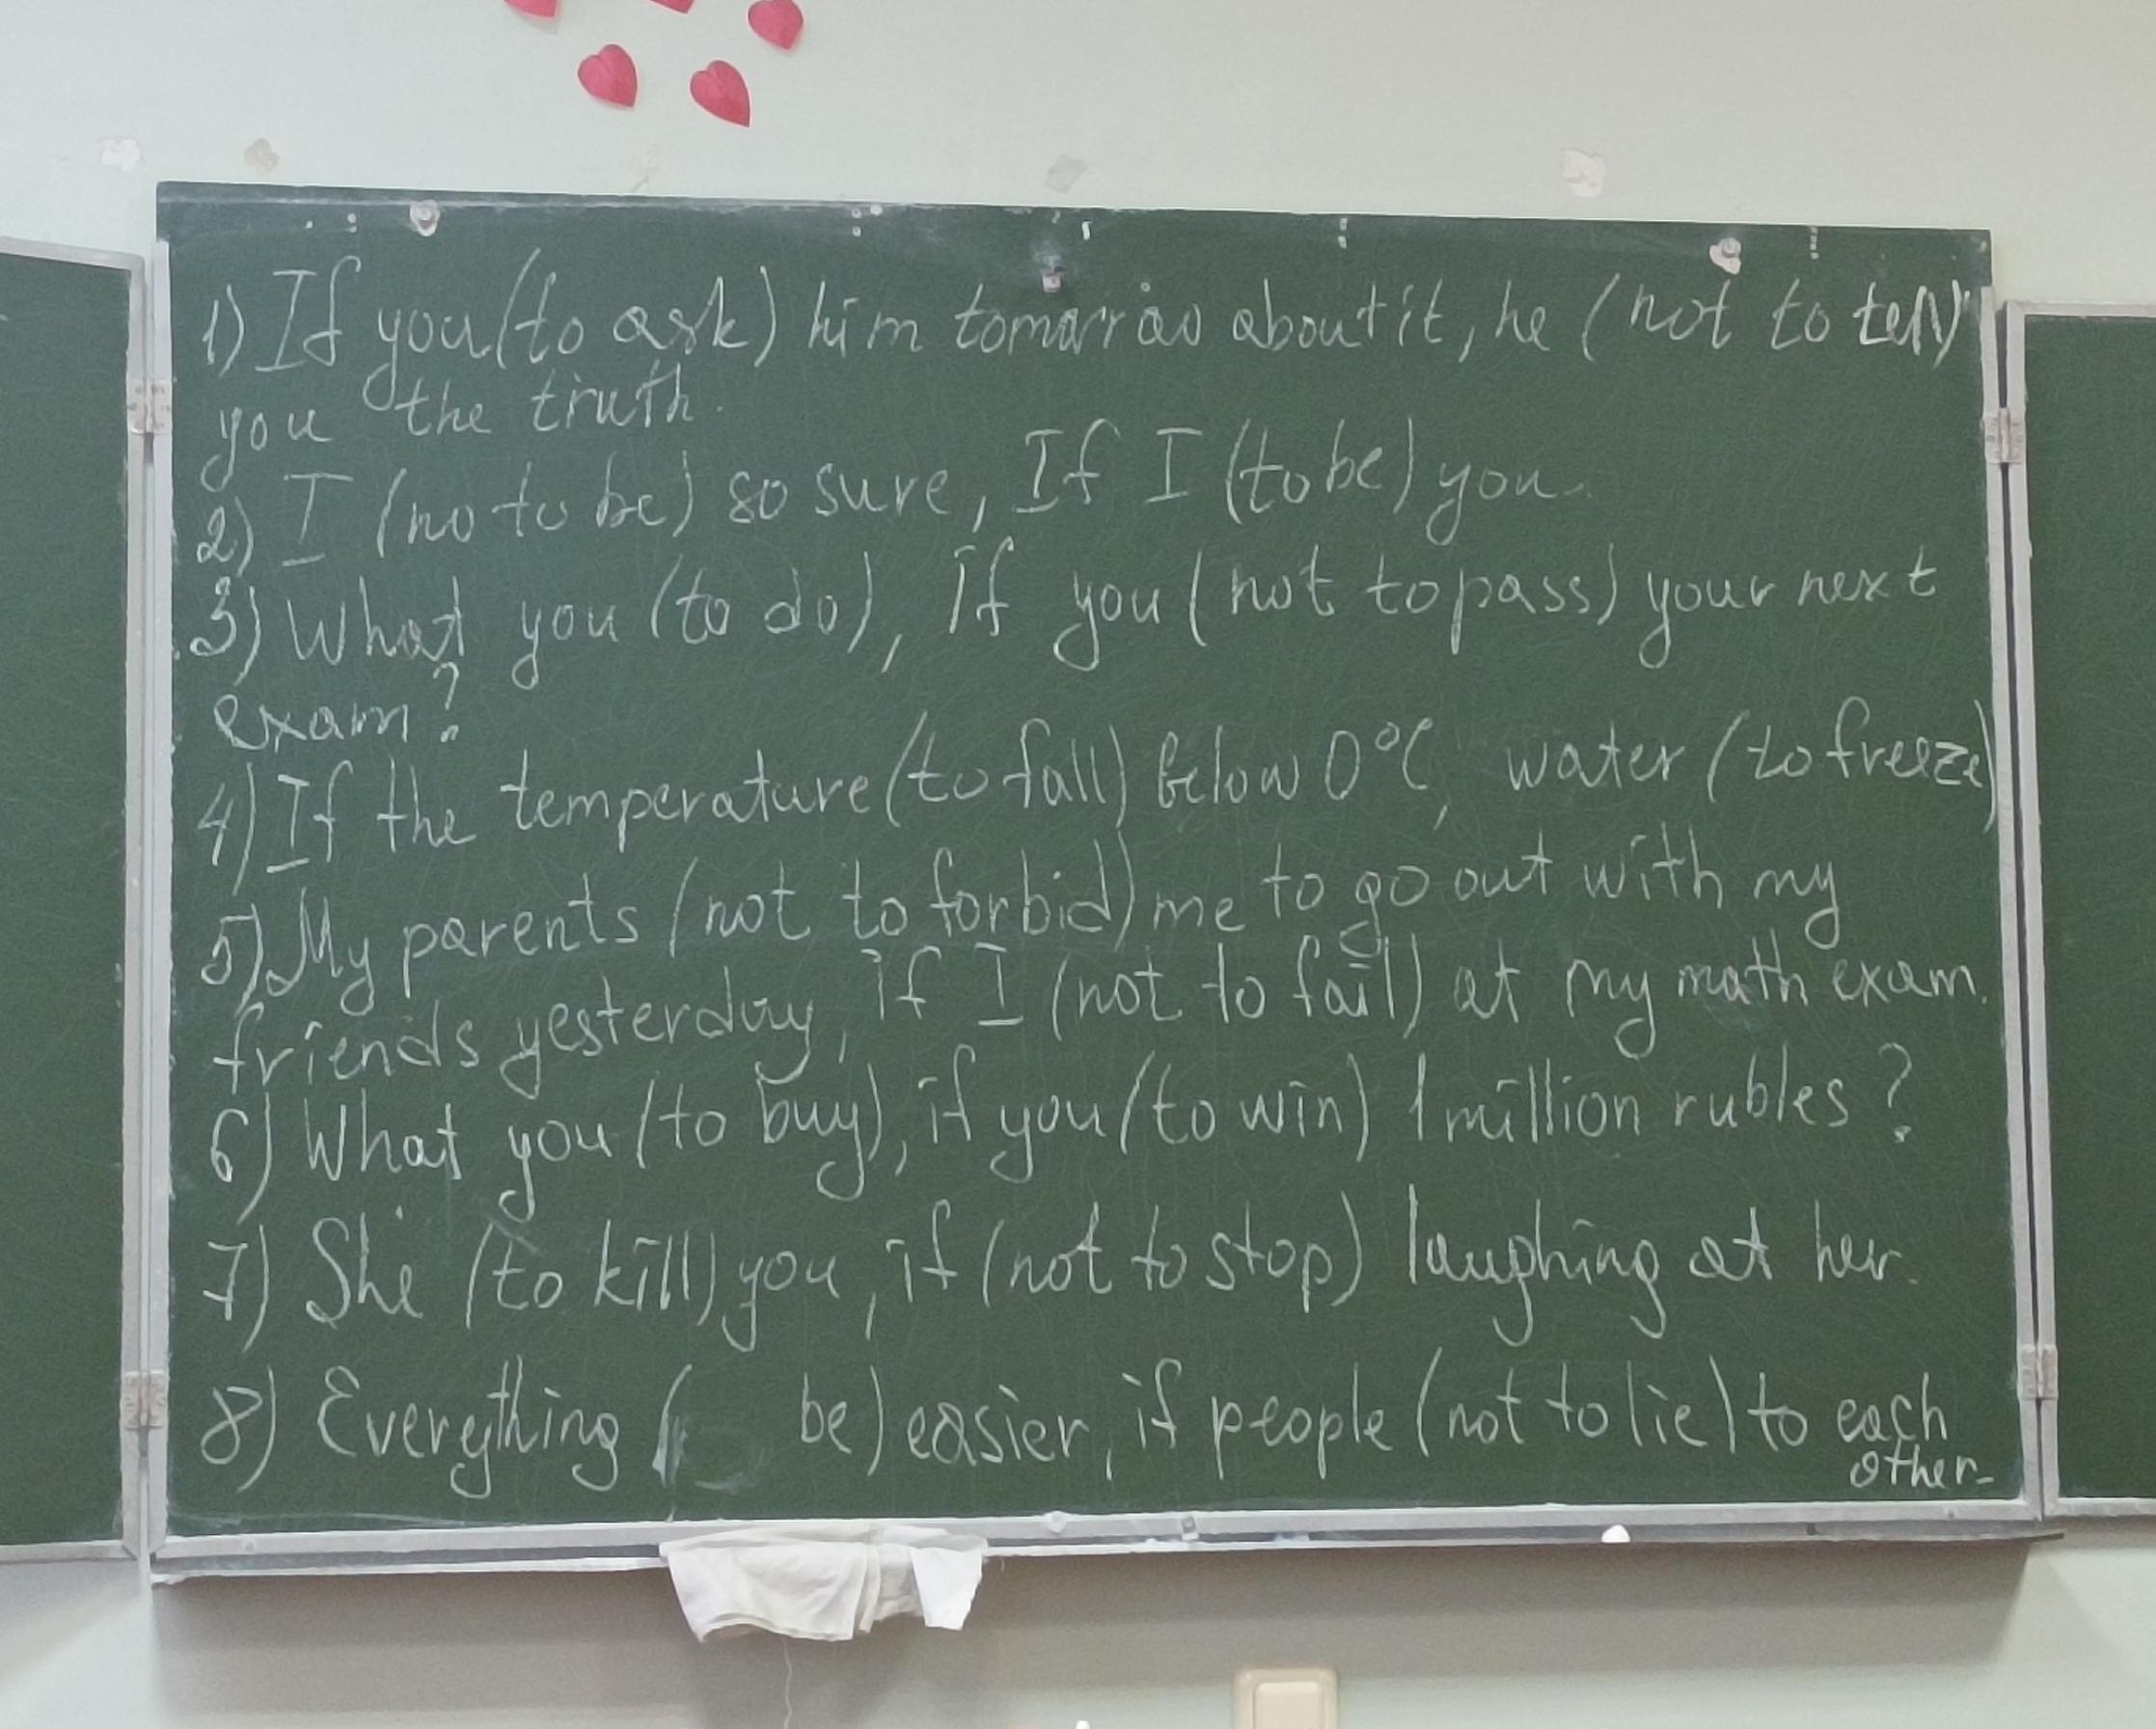 1) If you (to ask) him tomorrow about it, he (not to tell)
you the truth.
2) I (no to be) so sure, If I (to be) you.
3) What you (to do), If you (not to pass) your next
exam?
4) If the temperature (to fall) below 0°C, water (to freeze)
5) My parents (not to forbid) me to go out with my
friends yesterday, if I (not to fail) at my math exam.
6) What you (to buy), if you (to win) 1 million rubles?
7) She (to kill) you, if (not to stop) laughing at her.
8) Everything ( be) easier, if people (not to lie) to each
other.